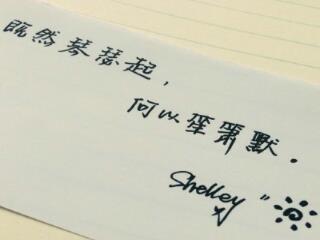 既然琴瑟起，
何以笙箫默．
Shelley